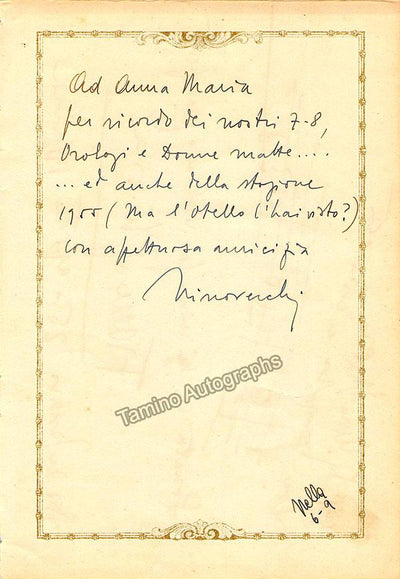 Ad Anna Maria
per ricordo dei nostri 7-8,
Orologi e Donne matte....
... ed anche della stagione
1955 (Ma l'Otello l'hai visto?)
con affettuosa amicizia
Nino Verchi
Tamino Autographs
Nella
6-9